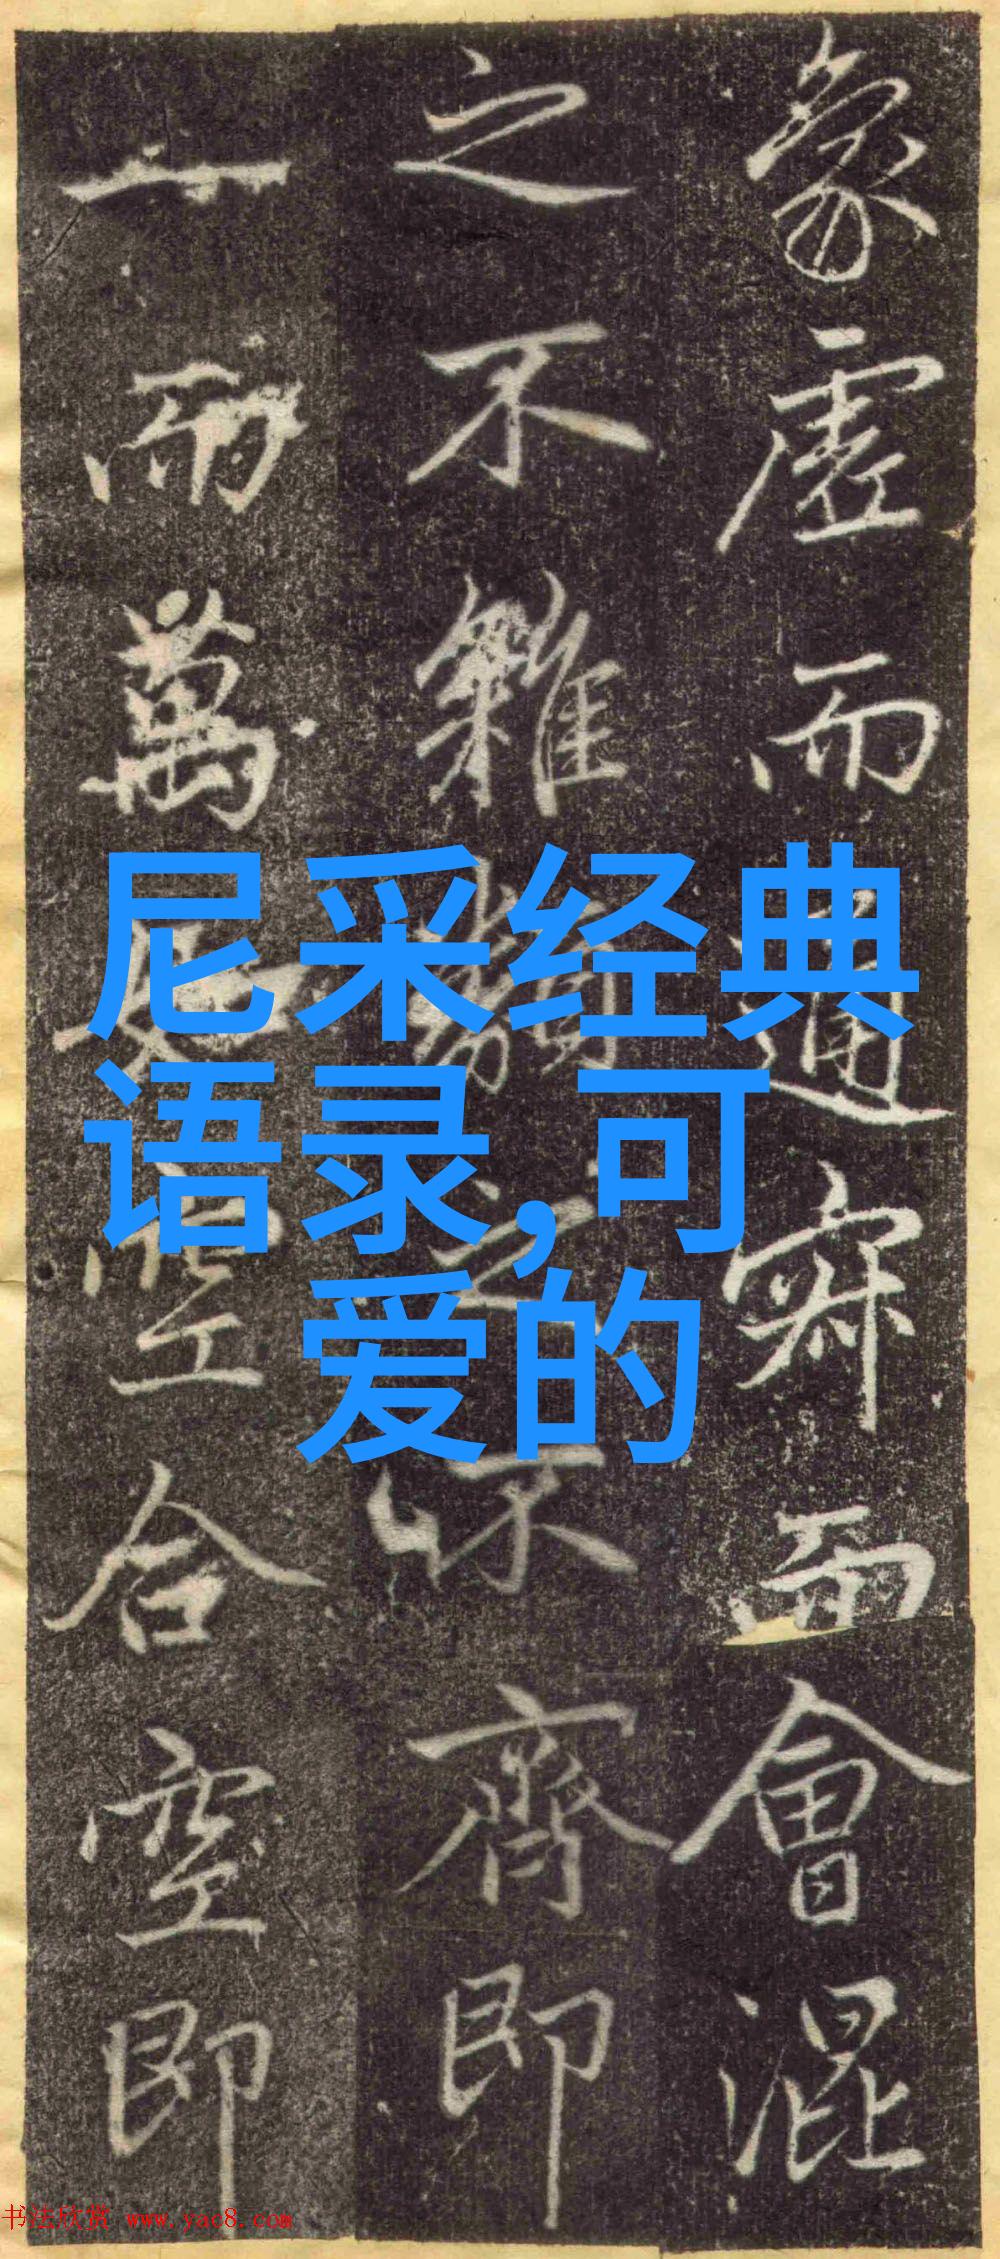 象虛而通寂而會混
之不雜類之不齊即
一而萬
合空即
尼采经典
语录,可
爱的
书法欣赏 www.yac8.com